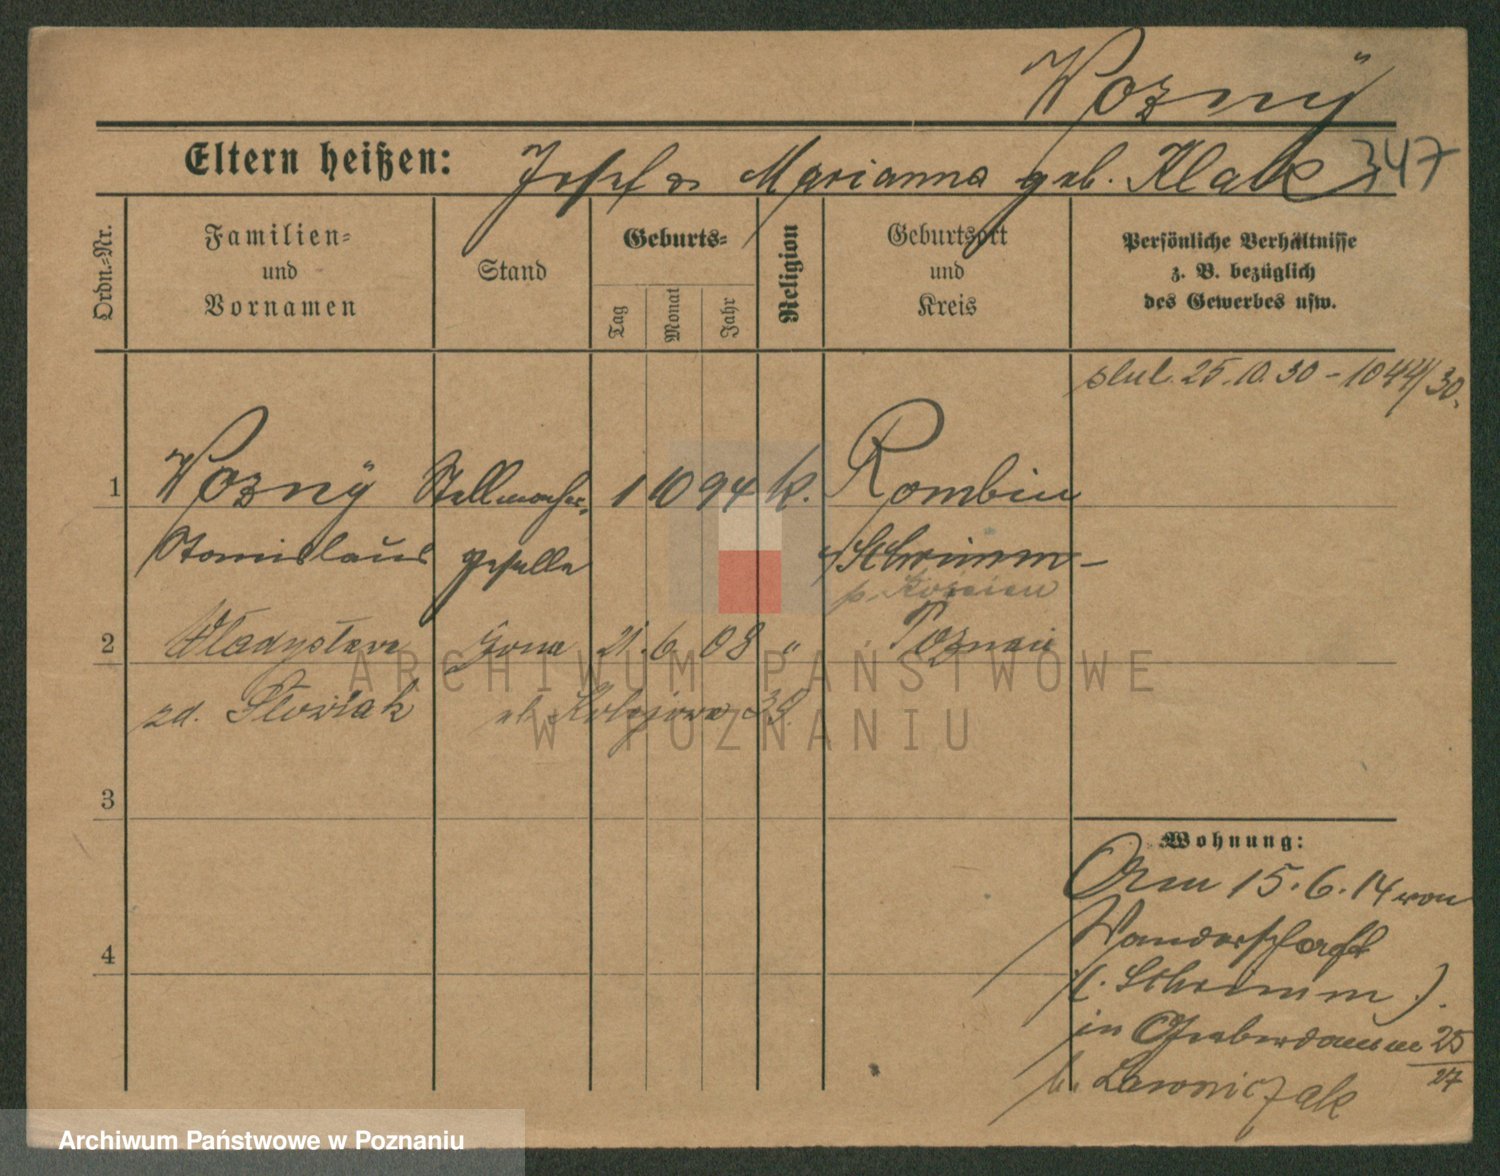 Wozny
Eltern heißen: Josef & Marianna geb. Klak 347
Ordn.-Nr.
Familien-
und
Vornamen
Stand
Geburts-
Tag
Monat
Jahr
Religion
Geburtsort
und
Kreis
Persönliche Verhältnisse
z. B. bezüglich
des Gewerbes usw.
25.10.30 - 1044/30.
1 Wozny Stellmacher- 1 10 94 k. Rombin
Stanislaus geselle Schrimm
p.
2 Władysława żona 21. 6. 08 " Poznań
zd. ul. Kolejowa 38.
3
4
Wohnung:
Am 15.6.14 von
Wanderschaft
(. Schrimm .)
in Graberdamm 25/27
b. Lawniczak
ARCHIWUM PAŃSTWOWE
W POZNANIU
Archiwum Państwowe w Poznaniu